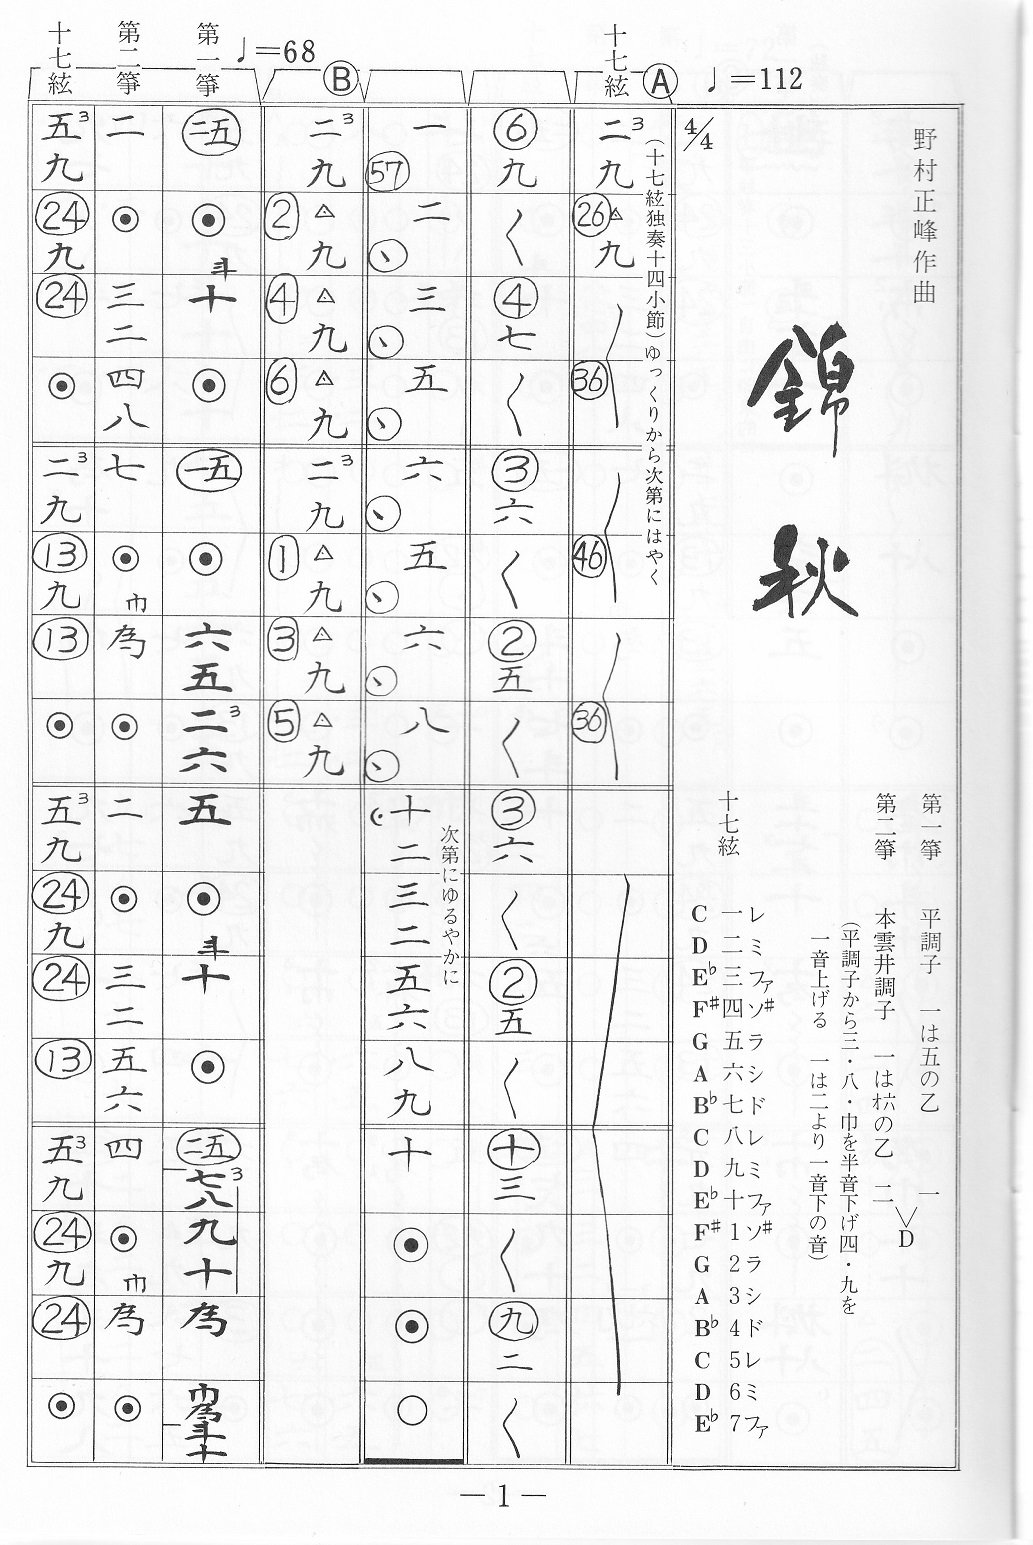 野村正峰作曲
錦秋
第一箏 平調子 一は五の乙 一
第二箏 本雲井調子 一は六の乙 二
＞D
(平調子から三・八・巾を半音下げ四・九を
一音上げる 一は二より一音下の音)
十七絃
C 一 レ
D 二 ミ
E♭ 三 ファ
F♯ 四 ソ♯
G 五 ラ
A 六 シ
B♭ 七 ド
C 八 レ
D 九 ミ
E♭ 十 ファ
F♯ 1 ソ♯
G 2 ラ
A 3 シ
B♭ 4 ド
C 5 レ
D 6 ミ
E♭ 7 ファ
♩=112
4/4
Ⓐ
十七絃
(十七絃独奏十四小節)ゆっくりから次第にはやく
二3
九
26 △
九
36
46
36
⑥
九
く
④
七
く
③
六
く
②
五
く
③
六
く
②
五
く
十
三
く
九
二
く
一
57
二
ヽ
三
ヽ
五
ヽ
六
ヽ
五
ヽ
六
ヽ
八
ヽ
十
二
三
二
五
六
八
九
十
⦿
⦿
○
次第にゆるやかに
Ⓑ
二3
九
② △
九
④ △
九
⑥ △
九
二3
九
① △
九
③ △
九
⑤ △
九
♩=68
第一箏
二五
⦿
斗
十
⦿
一五
⦿
六
五
二3
六
五
⦿
斗
十
⦿
二五
七3
八
九
十
為
巾
為
斗
十
第二箏
二
⦿
三
二
四
八
七
⦿
巾
為
⦿
二
⦿
三
二
五
六
四
⦿
巾
為
⦿
十七絃
五3
九
24
九
24
⦿
二3
九
13
九
13
⦿
五3
九
24
九
24
13
五3
九
24
九
24
⦿
— 1 —